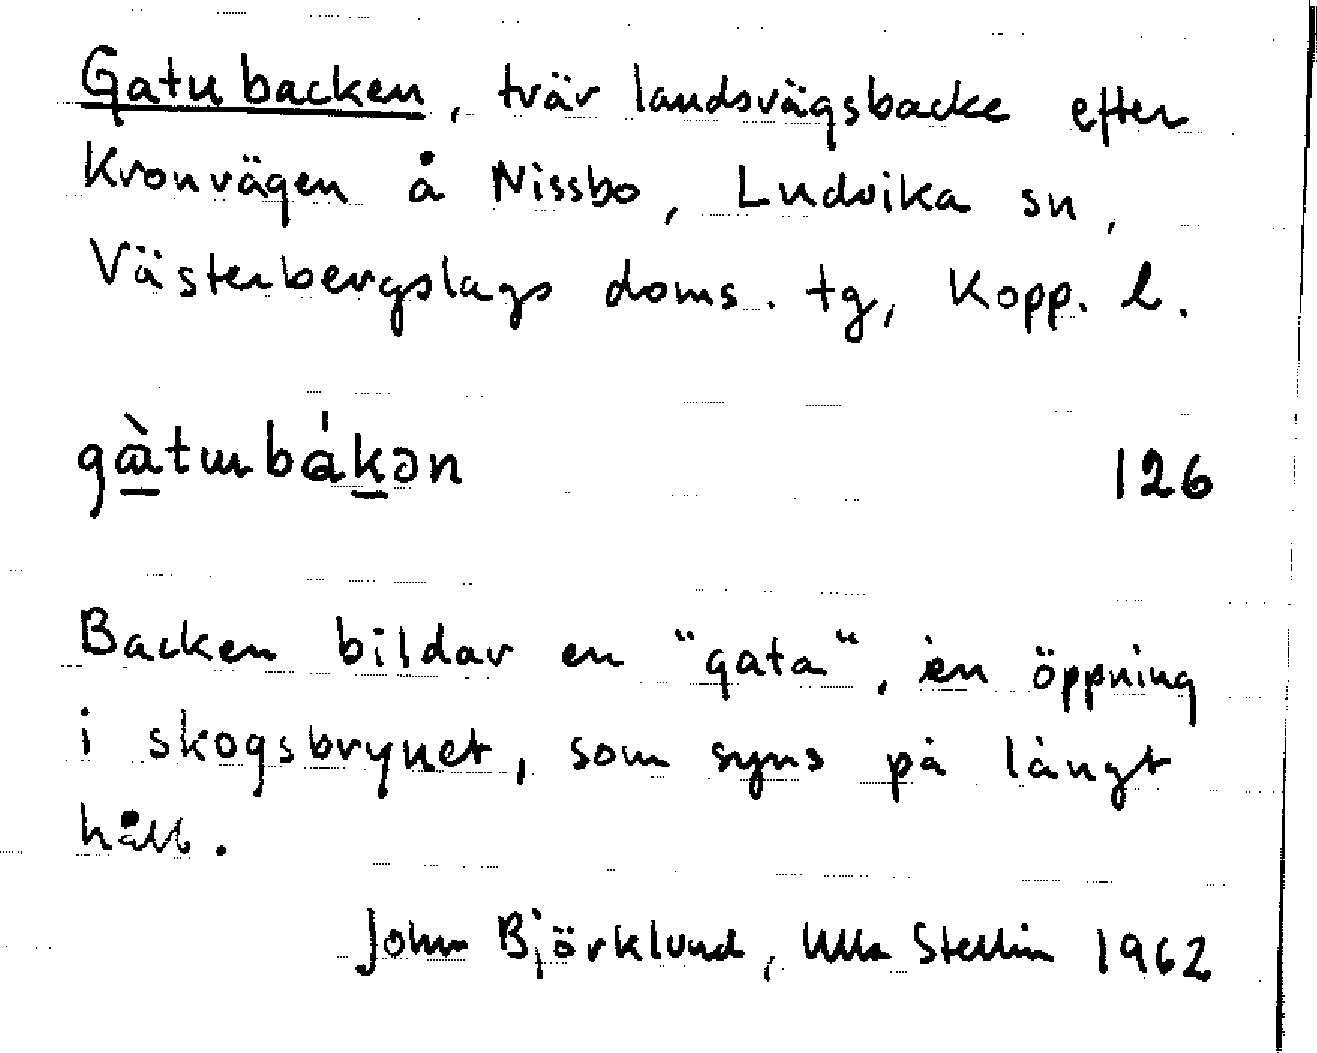 Gatubacken, tvär landsvägsbacke efter
Kronvägen å Nissbo, Ludvika sn,
Västerbergslags doms. tg, Kopp. l.
gàtɯbákən 126
Backen bildar en "gata", en öppning
i skogsbrynet, som syns på långt
håll.
John Björklund, Ulla Stellin 1962